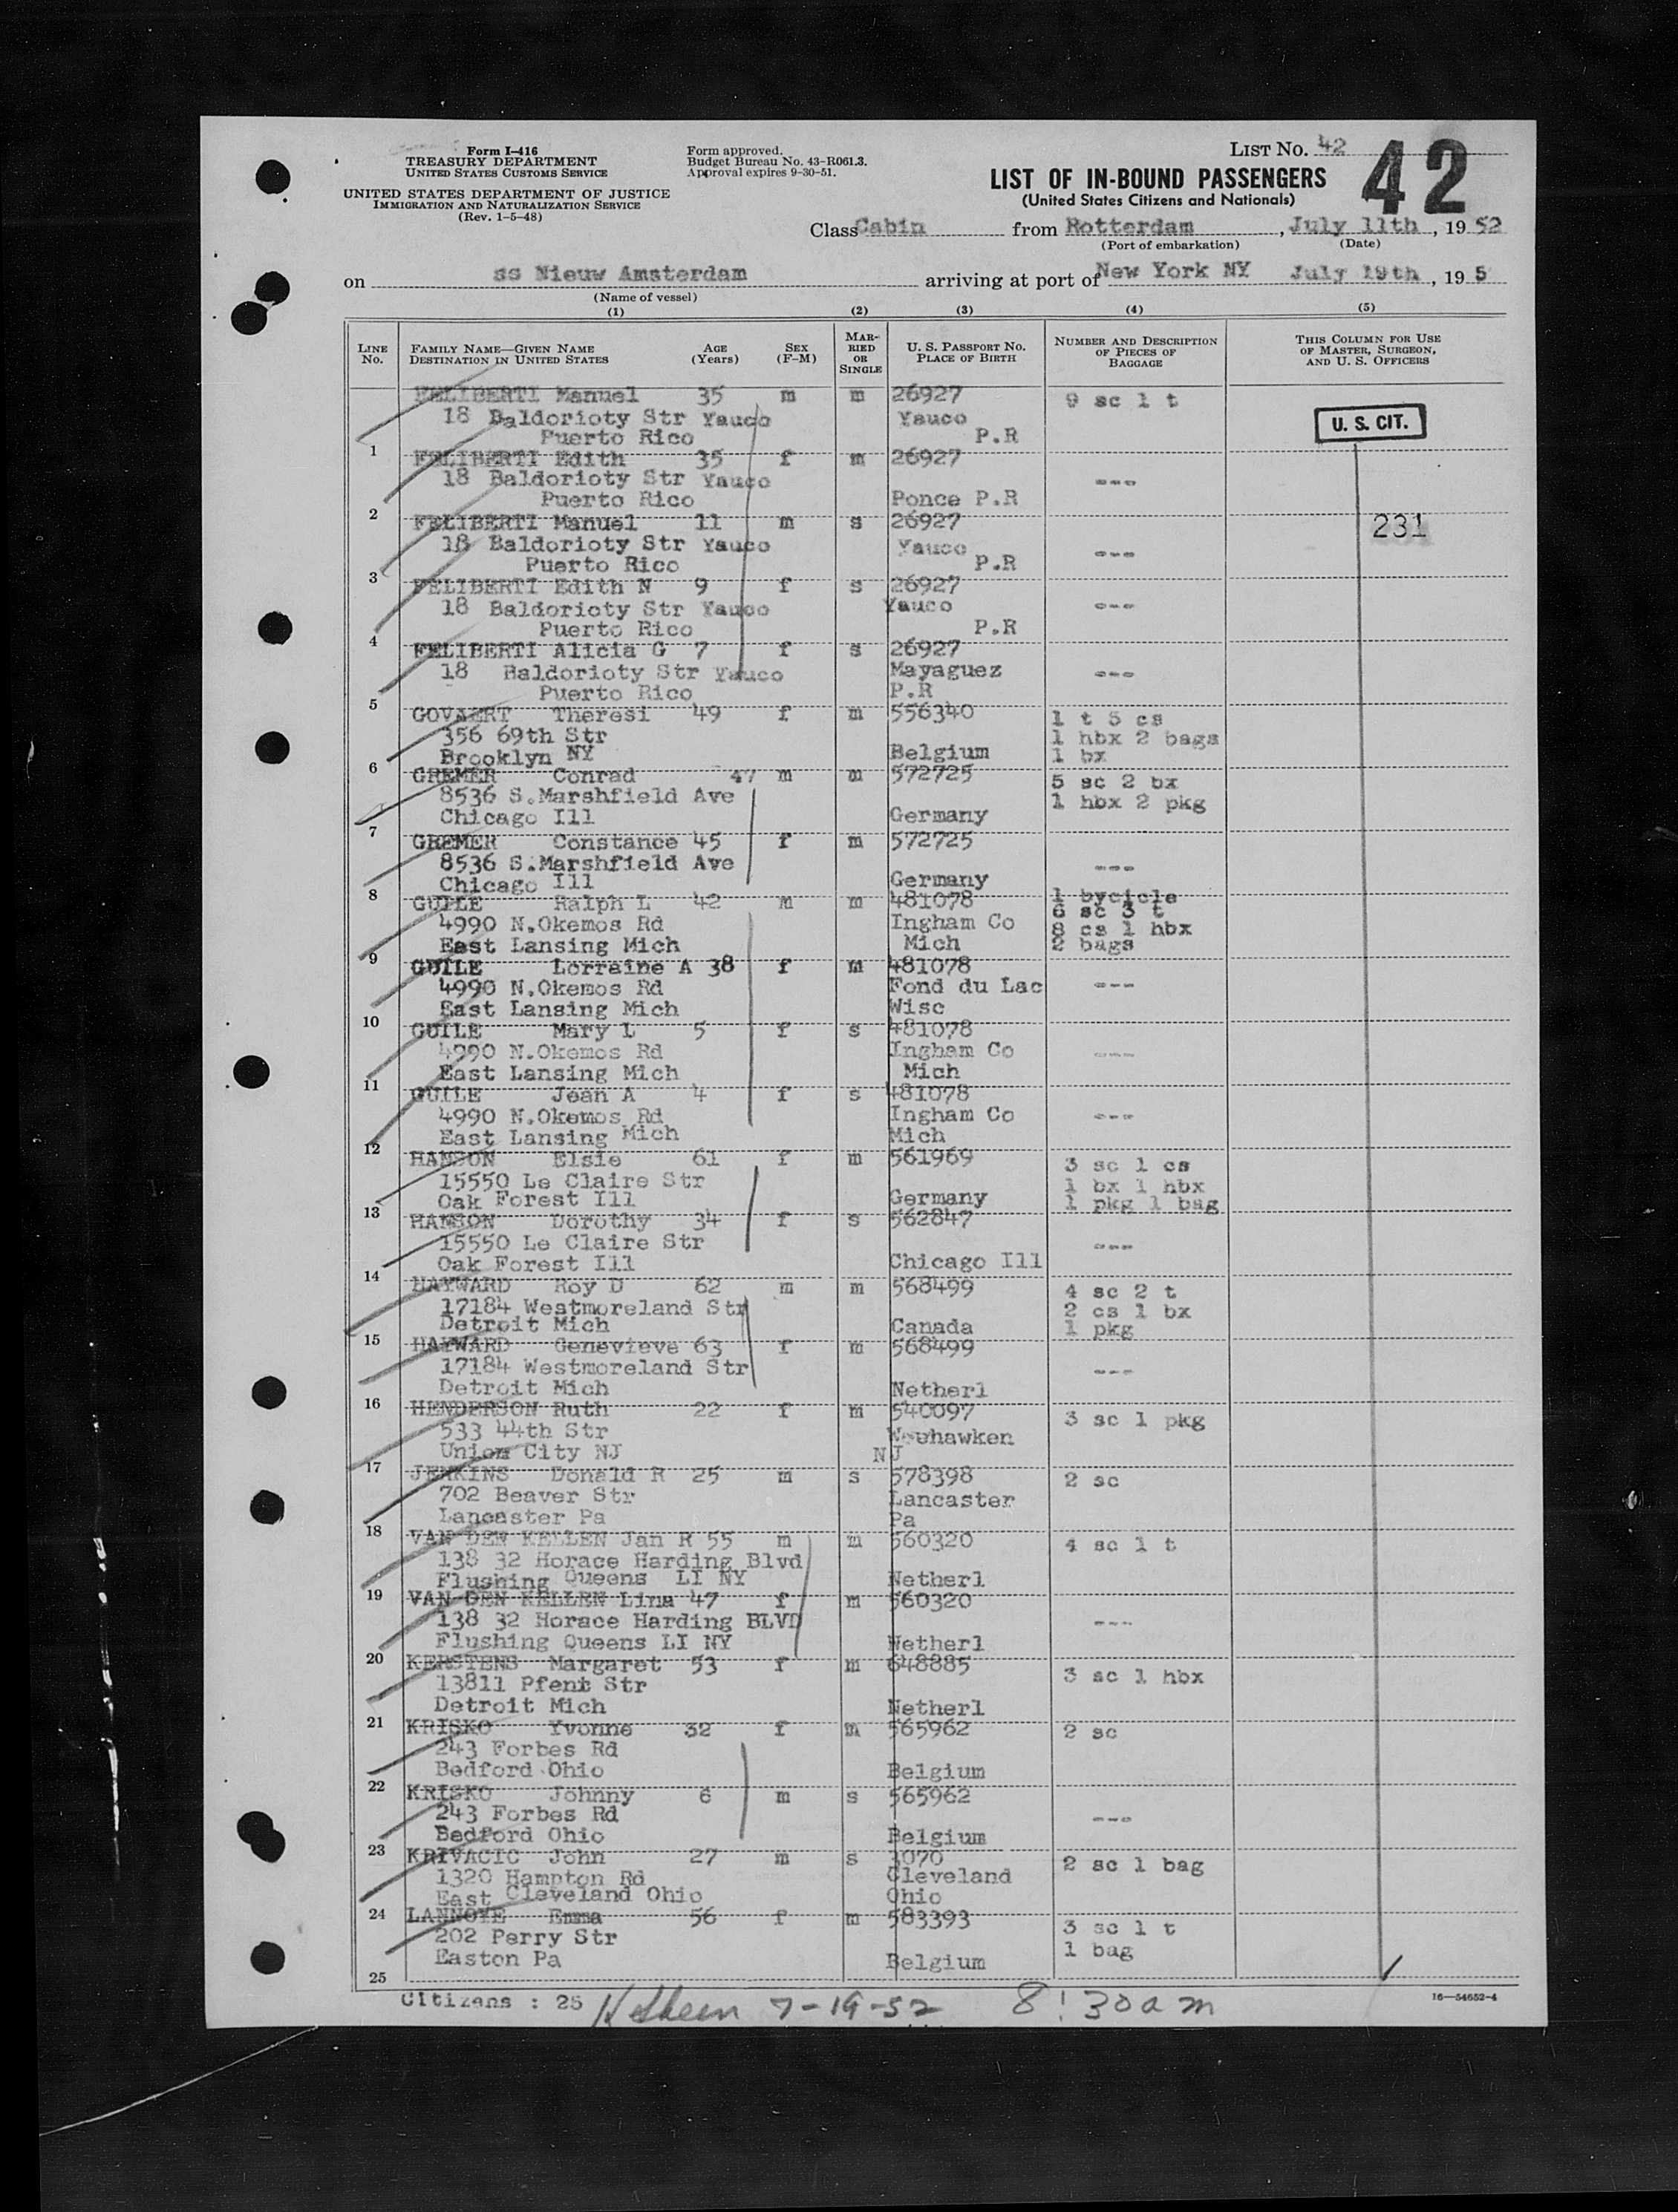 Form I-416
TREASURY DEPARTMENT
UNITED STATES CUSTOMS SERVICE
UNITED STATES DEPARTMENT OF JUSTICE
IMMIGRATION AND NATURALIZATION SERVICE
(Rev. 1-5-48)
Form approved.
Budget Bureau No. 43-R061.3.
Approval expires 9-30-51.
LIST NO. 42
42
LIST OF IN-BOUND PASSENGERS
(United States Citizens and Nationals)
Class Cabin from Rotterdam, July 11th, 19 52
(Port of embarkation) (Date)
on ss Nieuw Amsterdam arriving at port of New York NY July 19th, 19 5
(Name of vessel)
(1) (2) (3) (4) (5)
LINE No. FAMILY NAME—GIVEN NAME DESTINATION IN UNITED STATES AGE (Years) SEX (F-M) MARRIED OR SINGLE U. S. PASSPORT NO. PLACE OF BIRTH NUMBER AND DESCRIPTION OF PIECES OF BAGGAGE THIS COLUMN FOR USE OF MASTER, SURGEON, AND U. S. OFFICERS
FELIBERTI Manuel 35 m m 26927 9 sc 1 t
18 Baldorioty Str Yauco Yauco U. S. CIT.
Puerto Rico P.R
1
FELIBERTI Edith 35 f m 26927
18 Baldorioty Str Yauco ---
Puerto Rico Ponce P.R
2
FELIBERTI Manuel 11 m s 26927 231
18 Baldorioty Str Yauco Yauco ---
Puerto Rico P.R
3
FELIBERTI Edith N 9 f s 26927
18 Baldorioty Str Yauco Yauco ---
Puerto Rico P.R
4
FELIBERTI Alicia G 7 f s 26927
18 Baldorioty Str Yauco Mayaguez ---
Puerto Rico P.R
5
GOVAERT Theresi 49 f m 556340 1 t 5 cs
356 69th Str 1 hbx 2 bags
Brooklyn NY Belgium 1 bx
6
GREMER Conrad 47 m m 572725 5 sc 2 bx
8536 S.Marshfield Ave 1 hbx 2 pkg
Chicago Ill Germany
7
GREMER Constance 45 f m 572725
8536 S.Marshfield Ave ---
Chicago Ill Germany
8
GUILE Ralph L 42 m m 481078 1 bycicle
6 sc 3 t
4990 N.Okemos Rd Ingham Co 8 cs 1 hbx
East Lansing Mich Mich 2 bags
9
GUILE Lorraine A 38 f m 481078
4990 N.Okemos Rd Fond du Lac ---
East Lansing Mich Wisc
10
GUILE Mary L 5 f s 481078
4990 N.Okemos Rd Ingham Co ---
East Lansing Mich Mich
11
GUILE Jean A 4 f s 481078
4990 N.Okemos Rd Ingham Co ---
East Lansing Mich Mich
12
HANSON Elsie 61 f m 561969 3 sc 1 cs
15550 Le Claire Str 1 bx 1 hbx
Oak Forest Ill Germany 1 pkg 1 bag
13
HANSON Dorothy 34 f s 562847
15550 Le Claire Str ---
Oak Forest Ill Chicago Ill
14
HAYWARD Roy D 62 m m 568499 4 sc 2 t
17184 Westmoreland Str 2 cs 1 bx
Detroit Mich Canada 1 pkg
15
HAYWARD Genevieve 63 f m 568499
17184 Westmoreland Str ---
Detroit Mich Netherl
16
HENDERSON Ruth 22 f m 540097 3 sc 1 pkg
533 44th Str Weehawken
Union City NJ NJ
17
JENKINS Donald R 25 m s 578398 2 sc
702 Beaver Str Lancaster
Lancaster Pa Pa
18
VAN DEN KELLEN Jan R 55 m m 560320 4 sc 1 t
138 32 Horace Harding Blvd
Flushing Queens LI NY Netherl
19
VAN DEN KELLEN Lina 47 f m 560320
138 32 Horace Harding BLVD ---
Flushing Queens LI NY Netherl
20
KERSTENS Margaret 53 f m 648885 3 sc 1 hbx
13811 Pfent Str
Detroit Mich Netherl
21
KRISKO Yvonne 32 f m 565962 2 sc
243 Forbes Rd
Bedford Ohio Belgium
22
KRISKO Johnny 6 m s 565962
243 Forbes Rd ---
Bedford Ohio Belgium
23
KRIVACIC John 27 m s 3070 2 sc 1 bag
1320 Hampton Rd Cleveland
East Cleveland Ohio Ohio
24
LANNOYE Emma 56 f m 583393 3 sc 1 t
202 Perry Str 1 bag
Easton Pa Belgium
25
Citizens : 25 7-19-52 8:30am 16—54652-4